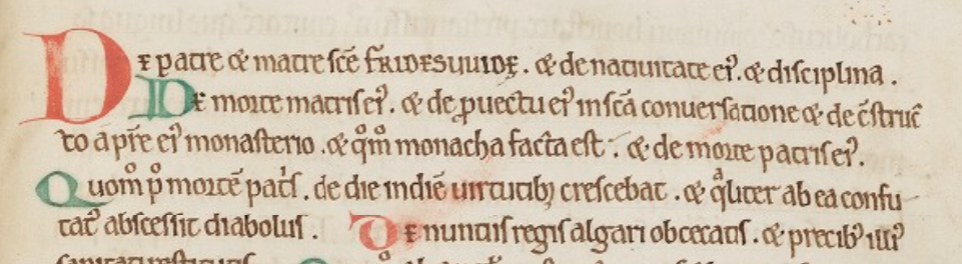 De patre & matre sc̄e fridesuuidę. & de natiuitate ei᷒. & disciplina.
De morte matris ei᷒. & de ꝓuectu ei᷒ in sc̄a conuersatione & de c̄struc
to a pr̄e ei᷒ monasterio. & qͦm monacha facta est. & de morte patris ei᷒.
Quom̊ p̊ mortē pat͛s. de die in diē uirtutibꝫ crescebat. & qͣliter ab ea confu
tat᷒ abscessit diabolus. De nuntiis regis algari obcecatis. & precib᷒ illi᷒
sanitati restitutis